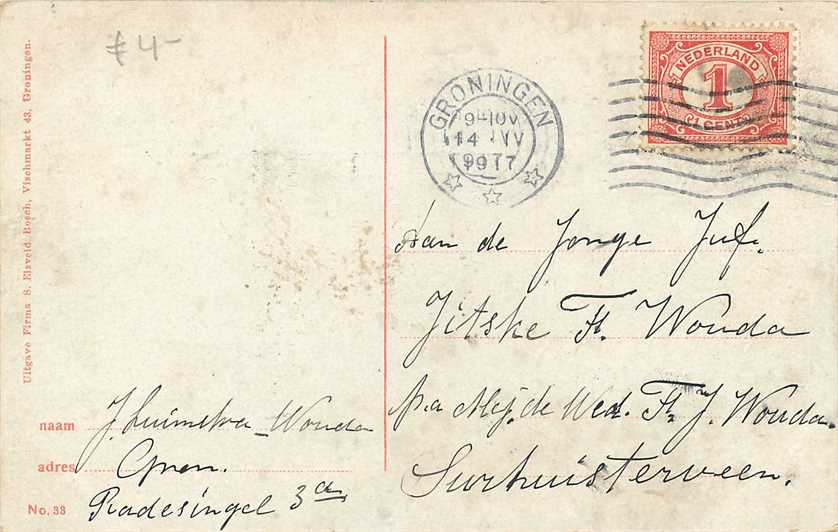 £ 4-
Uitgave Firma S. Elsveld Bosch, Vischmarkt 43, Groningen.
GRONINGEN
9-10V
14 IV
1917
NEDERLAND
1
1 CENT
Aan de Jonge Juf.
Jitske Ft. Wouda
p.a Mej. de Wed. Ft. J. Wouda.
Surhuisterveen.
naam J. Luimstra-Wouda
adres Gron.
No. 33 Radesingel 3a